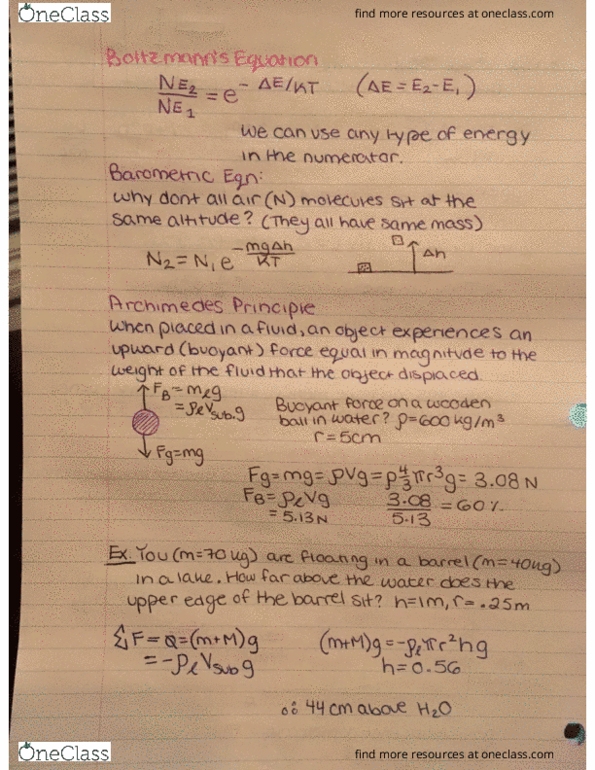 OneClass
find more resources at oneclass.com
Boltzmann's Equation
NE₂/NE₁ = e^(-ΔE/KT) (ΔE = E₂-E₁)
we can use any type of energy
in the numerator.
Barometric Eqn:
why dont all air (N) molecules sit at the
same altitude? (They all have same mass)
N₂ = N₁ e^(-mgΔh/KT)
Δh
Archimedes Principle
when placed in a fluid, an object experiences an
upward (buoyant) force equal in magnitude to the
weight of the fluid that the object displaced.
F_B = m_ℓg
= ρ_ℓV_sub g
Fg=mg
Buoyant force on a wooden
ball in water? ρ=600 kg/m³
r=5cm
Fg=mg=ρVg=ρ 4/3 πr³g= 3.08 N
F_B=ρ_ℓVg
= 5.13 N
3.08/5.13 = 60%
Ex. You (m=70 kg) are floating in a barrel (m=40kg)
in a lake. How far above the water does the
upper edge of the barrel sit? h=1m, r=.25m
ΣF=0=(m+M)g
= -ρ_ℓV_sub g
(m+M)g=-ρ_ℓπr²hg
h=0.56
∴ 44 cm above H₂O
OneClass
find more resources at oneclass.com